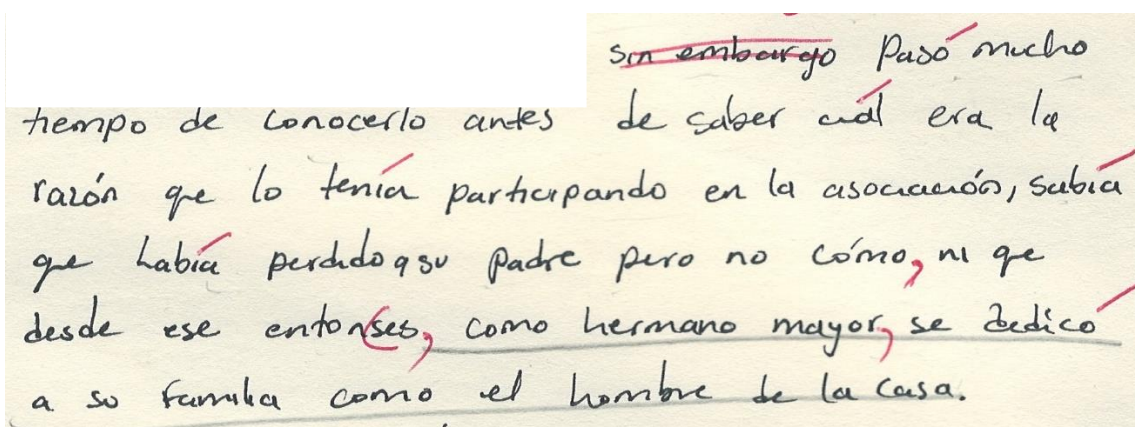 sin embargo Pasó mucho
tiempo de conocerlo antes de saber cuál era la
razón que lo tenía participando en la asociación, sabía
que había perdido a su padre pero no cómo, ni que
desde ese entonses, como hermano mayor, se dedicó
a su familia como el hombre de la casa.